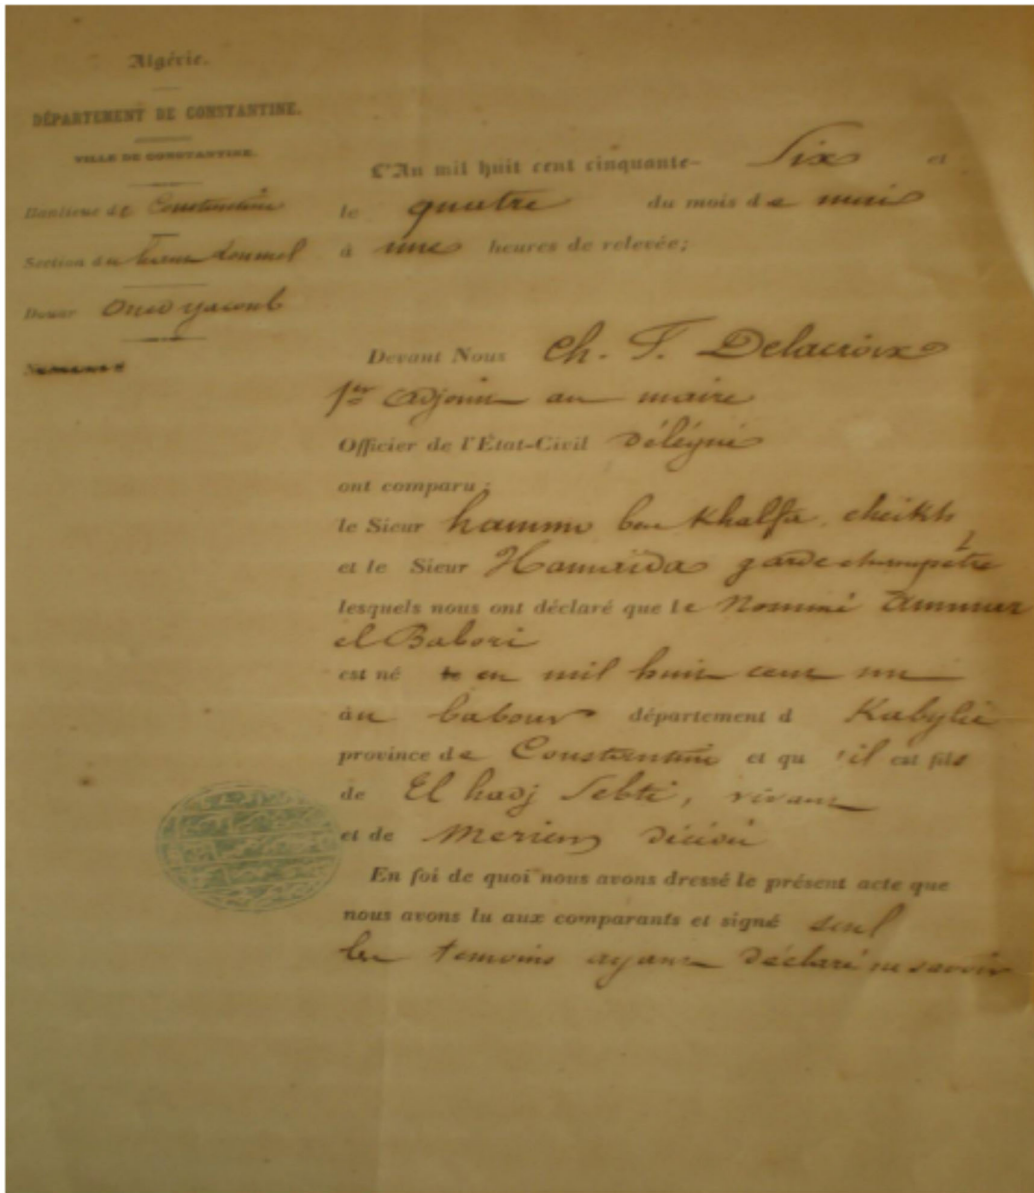 Algérie.
DÉPARTEMENT DE CONSTANTINE.
VILLE DE CONSTANTINE.
Banlieue de Constantine
Section du
Douar Oued yacoub
L'An mil huit cent cinquante- Six et
le quatre du mois de mai
à une heures de relevée;
Devant Nous Ch. F. Delacroix
1er adjoint au maire
Officier de l'État-Civil délégué
ont comparu :
le Sieur hammo ben Khalfa, cheikh
et le Sieur Hamaïda garde champêtre
lesquels nous ont déclaré que le nommé Ammar
el Babori
est né en mil huit cent un
au babour département d Kabylie
province de Constantine et qu 'il est fils
de El hadj Sebti, vivant
et de Meriem décédé
En foi de quoi nous avons dressé le présent acte que
nous avons lu aux comparants et signé seul
les temoins ayant déclaré ne savoir